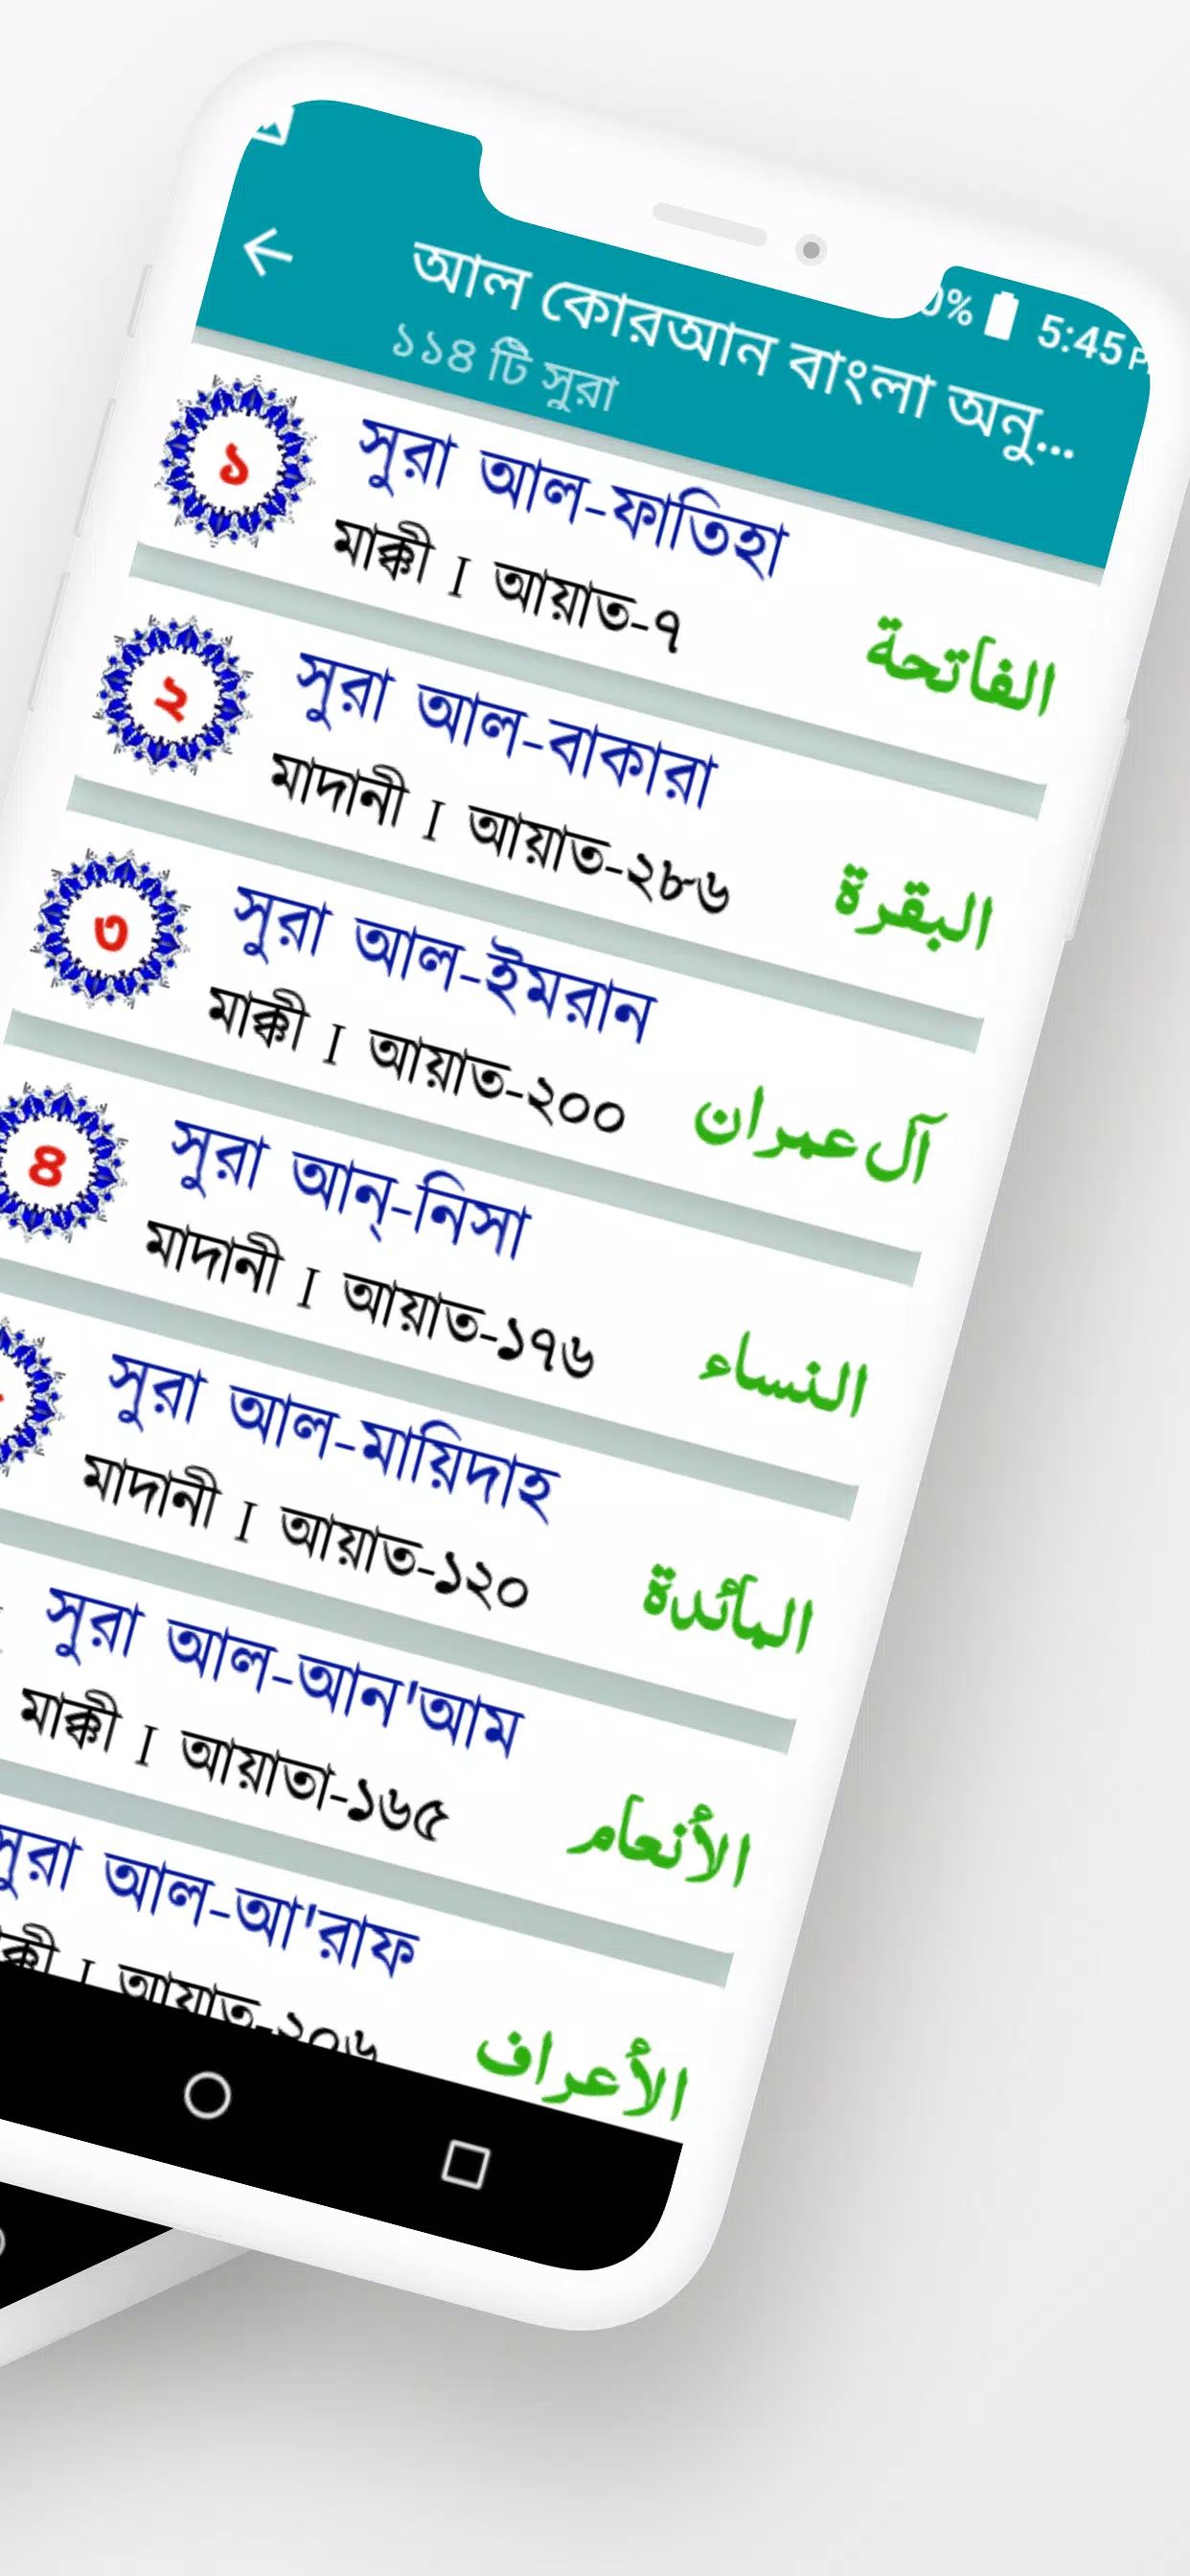 5:45
আল কোরআন বাংলা অনু...
১১৪ টি সুরা
১
সুরা আল-ফাতিহা
মাক্কী I আয়াত-৭
الفاتحة
২
সুরা আল-বাকারা
মাদানী I আয়াত-২৮৬
البقرة
৩
সুরা আল-ইমরান
মাক্কী I আয়াত-২০০
آل عمران
৪
সুরা আন্-নিসা
মাদানী I আয়াত-১৭৬
النساء
সুরা আল-মায়িদাহ
মাদানী I আয়াত-১২০
المائدة
সুরা আল-আন'আম
মাক্কী I আয়াতা-১৬৫
الأنعام
সুরা আল-আ'রাফ
I আয়াত-২০৬
الأعراف